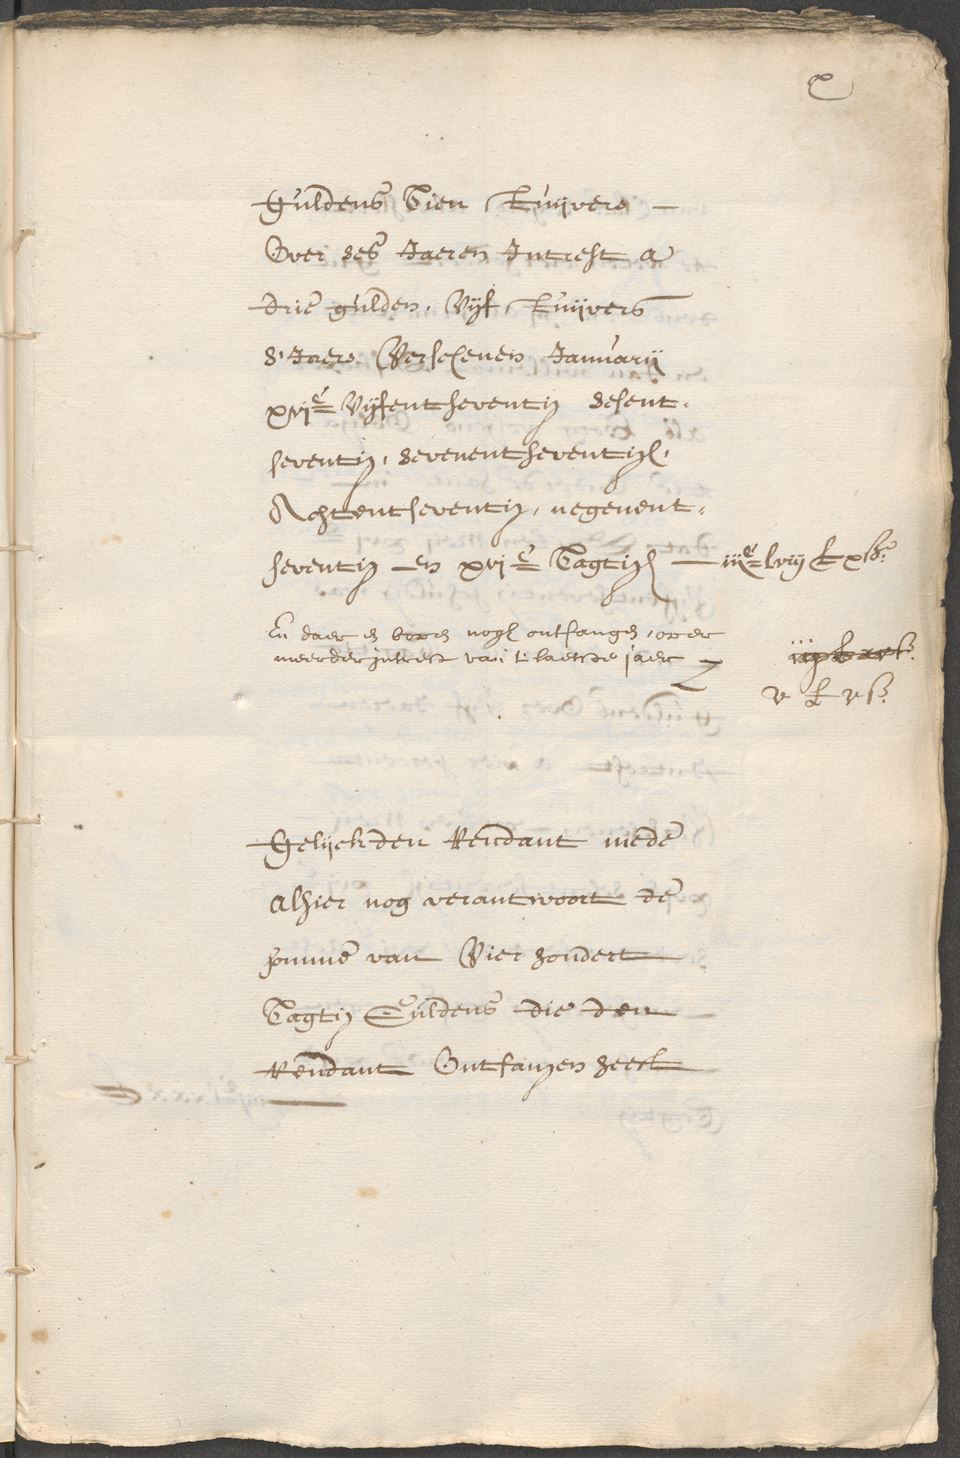 x
Guldens Tien Stuijvers —
Over ses Jaeren Intrest a
drie gulden, Vijf, Stuijvers
s'Jaers Verschenen Januarij
xvjc Vijfentseventig sesent-
seventig, sevenentseventigh,
Achtentseventig, negenent-
seventig en xvjc Tagtigh — iiijc lviij £ x ß
En daer en boven nogh ontfangen, over
meerder intrest van 't laetste jaer
v £ v ß
Gelijck den Rendant mede
alhier nog verantwoort de
somme van Vier hondert
Tagtig Guldens die den
Rendant Ontfangen heeft